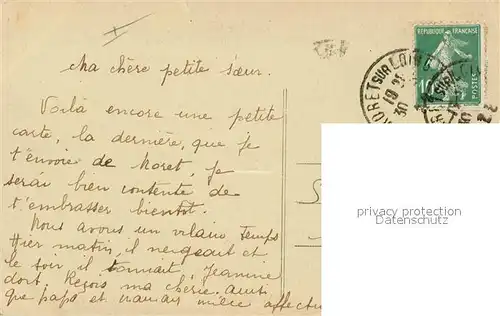 ma chère petite sœur.
Voilà encore une petite
carte, la dernière, que je
t'envoie de Moret, je
serai bien contente de
t'embrasser bientôt.
Nous avons un vilain temps
Hier matin, il neigeait et
le soir, il tonnait, Jeanine
dort. Reçois ma chérie ainsi
que papa et maman mille affectu
REPUBLIQUE FRANÇAISE
10
POSTES
MORET SUR LOING
privacy protection
Datenschutz